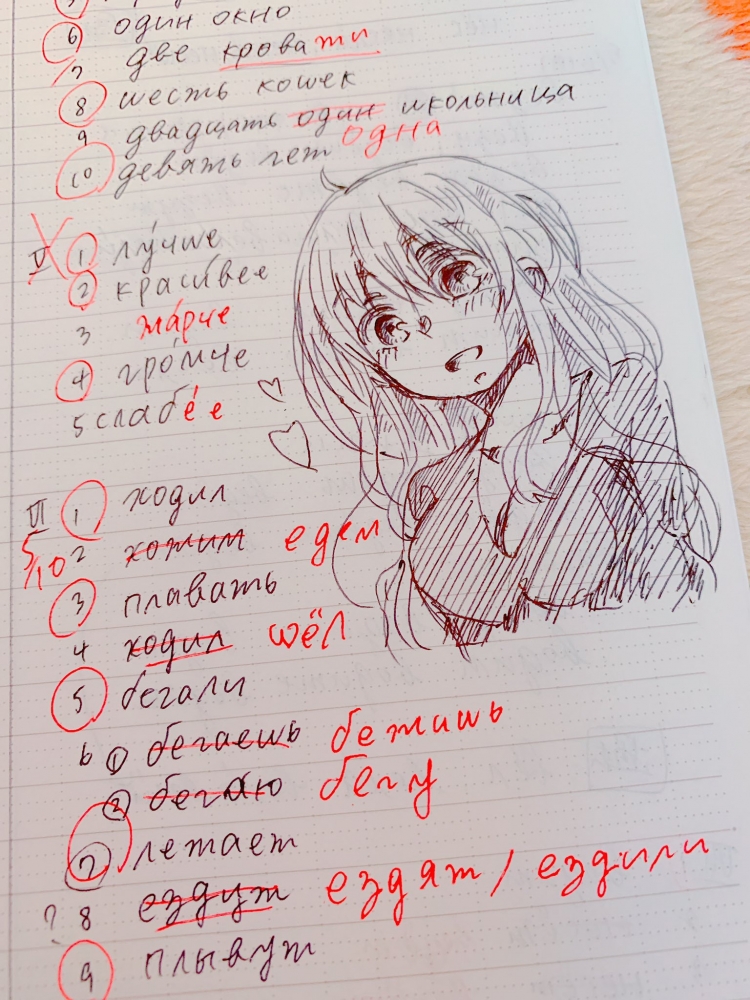 6 один окно
7 две кровати
8 шесть кошек
9 двадцать один школьница одна
10 девять лет
V 1 лу́чше
2 краси́вее
3 жа́рче
4 гро́мче
5 слабе́е
VI 1 ходил
5/10 2 хожим едем
3 плавать
4 ходил шёл
5 бегали
6 ① бегаешь бежишь
② бегаю бегу
7 летает
? 8 ездут ездят / ездили
9 плывут